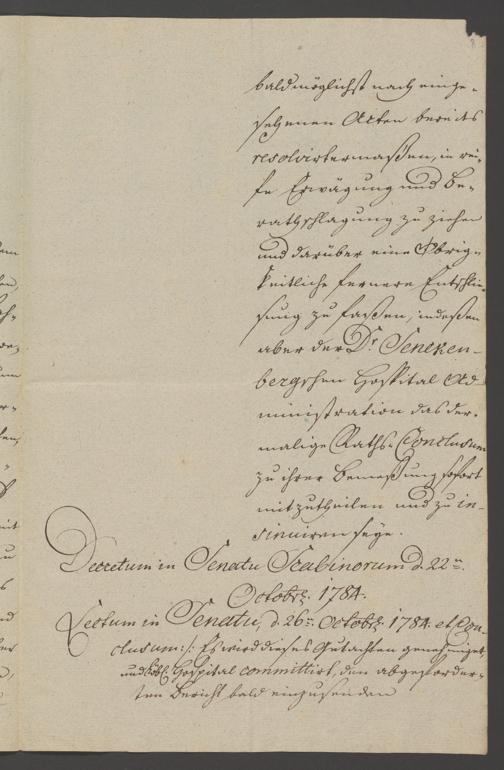 baldmöglichst nach einge-
sehenen Acten bereits
resolvirtermaßen, in rei-
fe Erwägung und Be-
rathschlagung zu ziehen
und darüber eine Obrig-
keitliche fernere Entschlie-
sung zu faßen, indeßen
aber der Dr. Sencken-
bergschen Hospital Ad-
ministration das der-
malige Raths-Conclusum
zu ihrer Bemeßung sofort
mitzutheilen und zu in-
sinuiren seye.
Decretum in Senatu Scabinorum d. 22ten
Octobr. 1784.
Lectum in Senatu, d. 26ten Octobr. 1784. et Con-
clusum :/: Es wird dieses Gutachten genehmiget,
und Hospital committirt, den abgeforder-
ten Bericht bald einzusenden